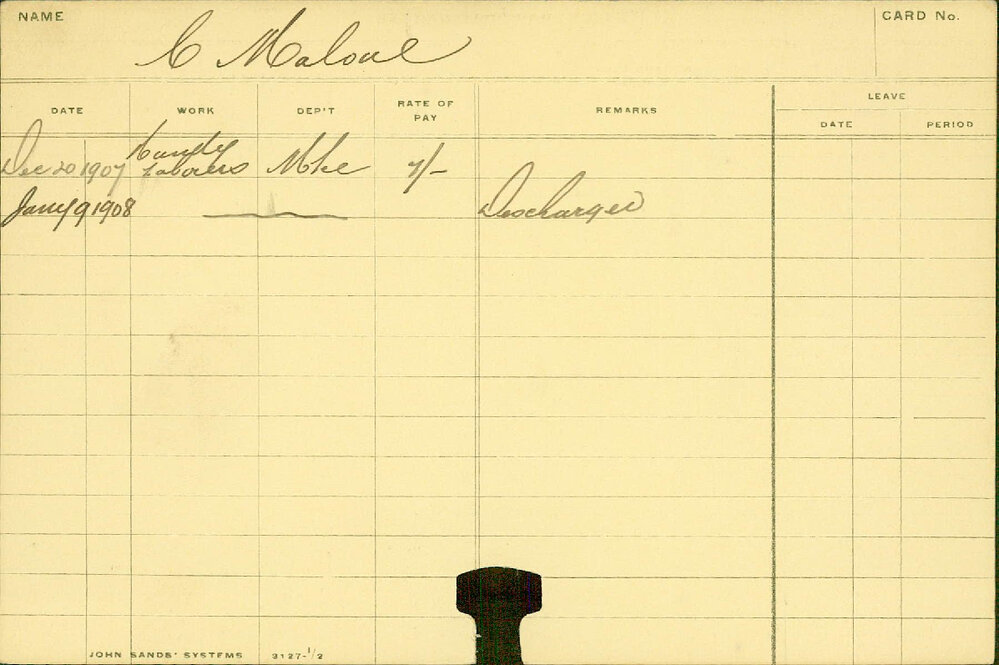 NAME CARD No.
C Malone
DATE WORK DEP'T RATE OF PAY REMARKS LEAVE
DATE PERIOD
Dec 20 1907 Handy Laborers Mke 7/-
Jany 9 1908 Discharged
JOHN SANDS' SYSTEMS 3127-1/2